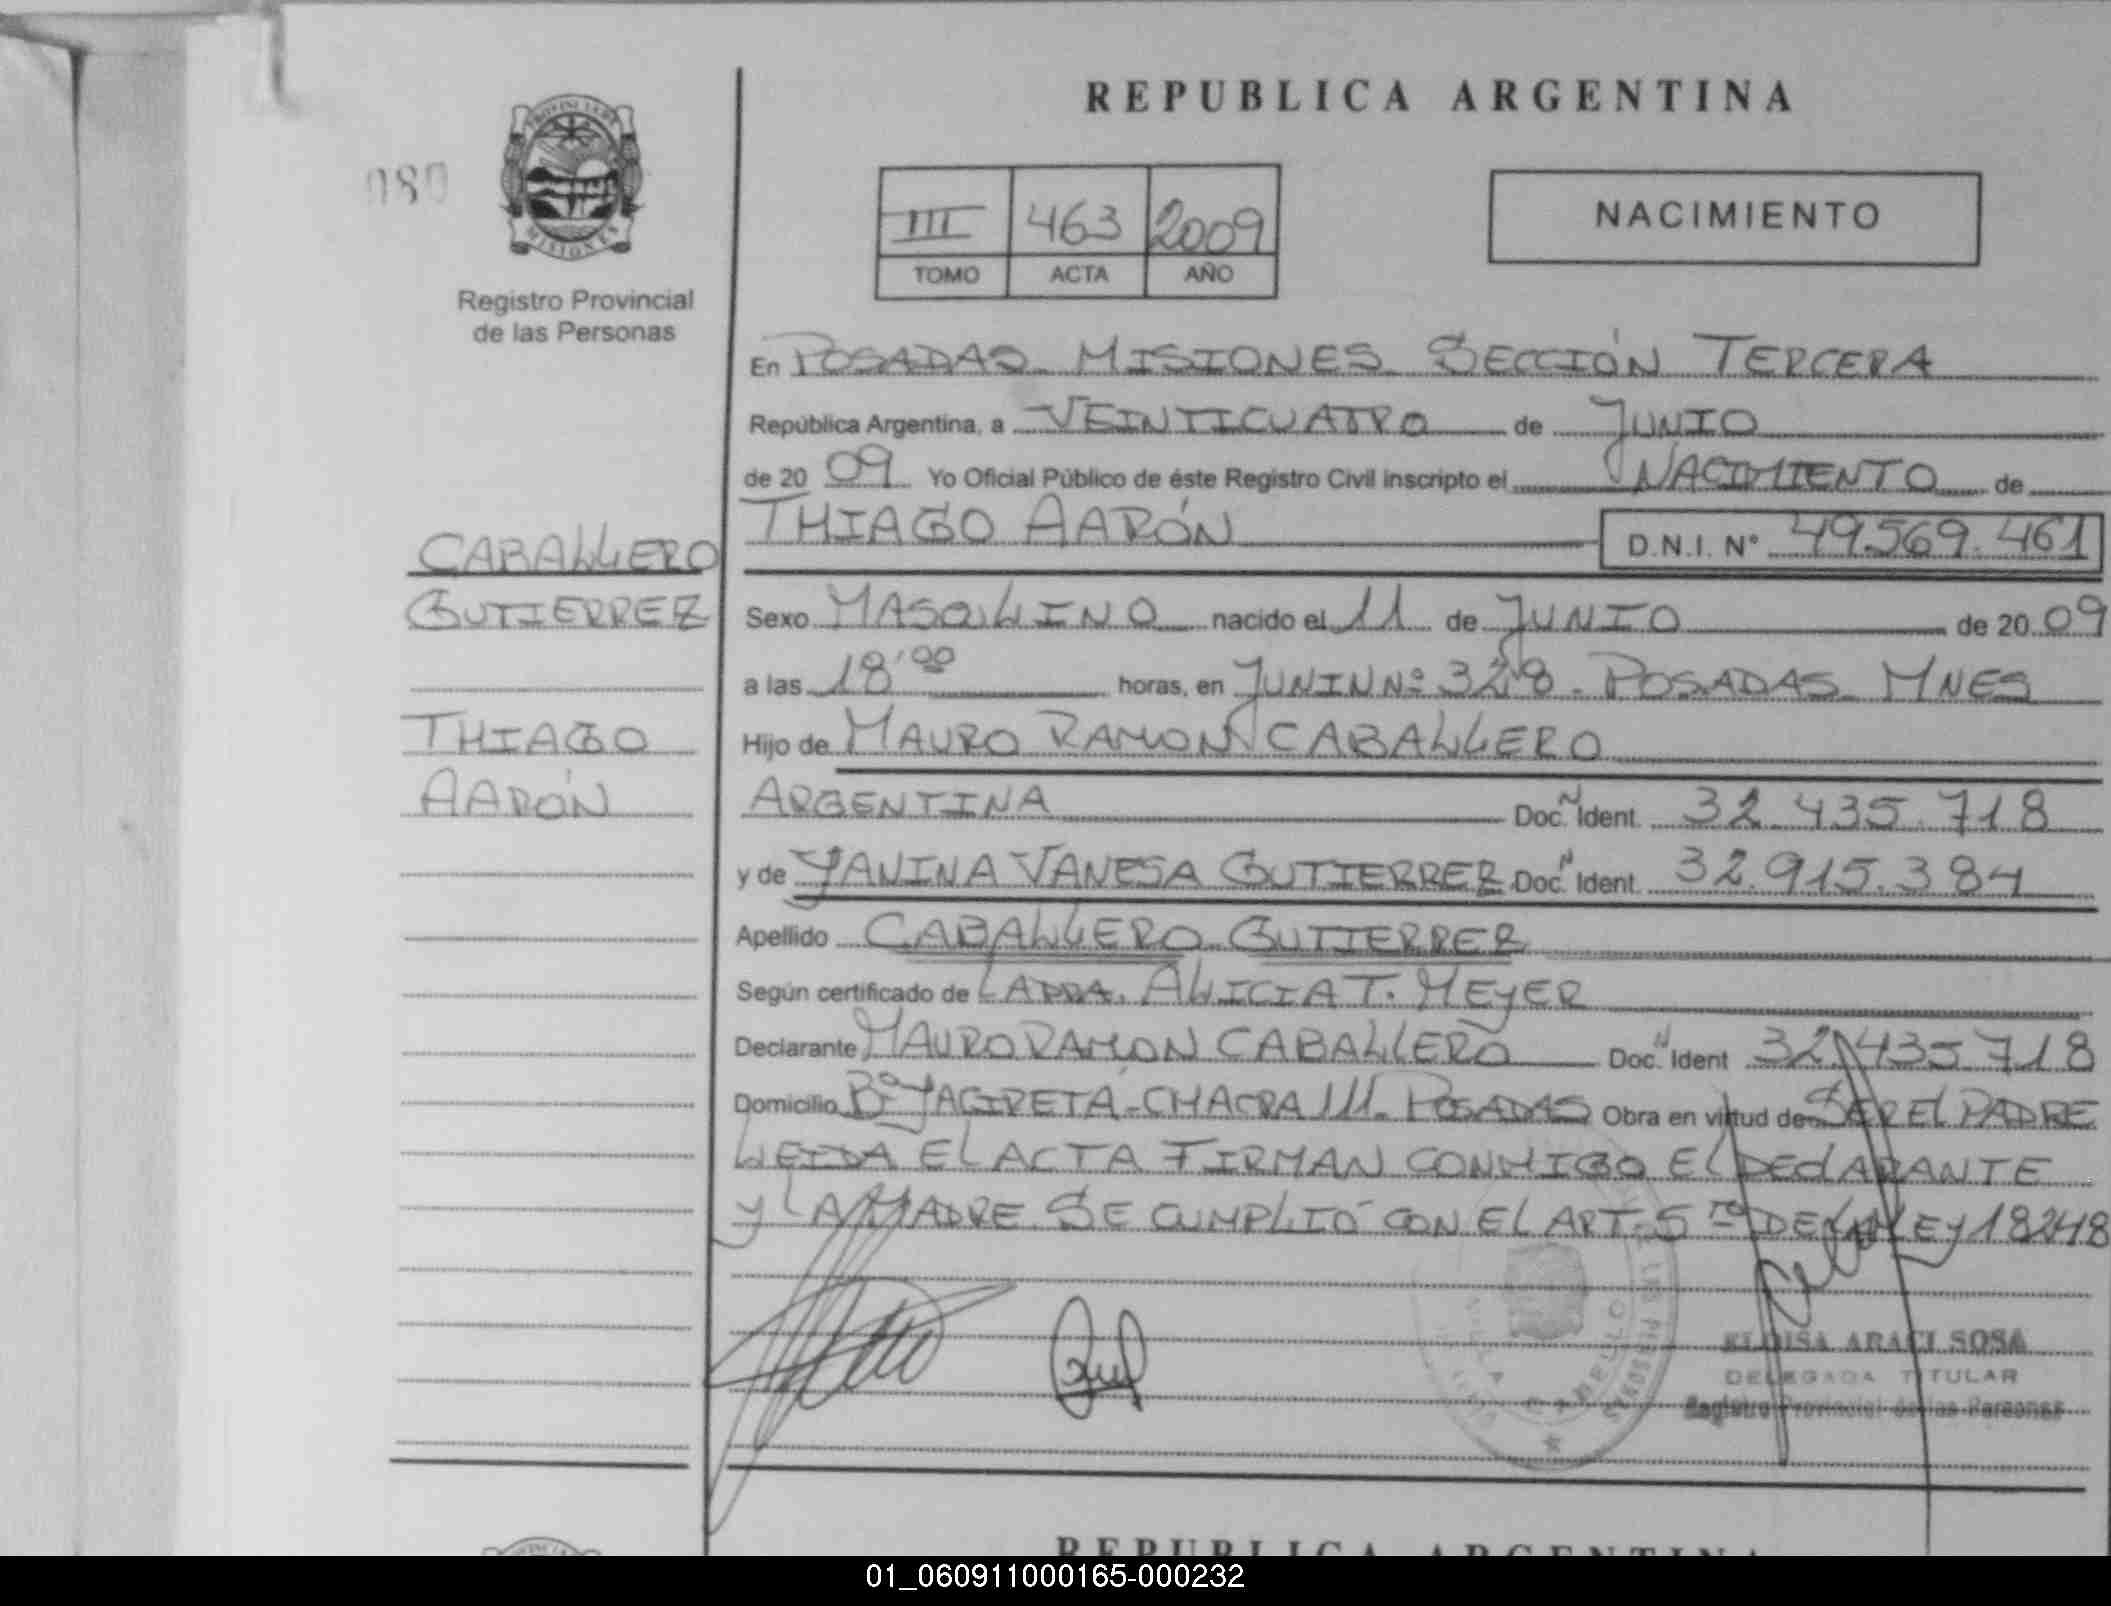 REPUBLICA ARGENTINA
080
PROVINCIA DE
MISIONES
Registro Provincial
de las Personas
III 463 2009
TOMO ACTA AÑO
NACIMIENTO
En POSADAS MISIONES SECCIÓN TERCERA
República Argentina, a VEINTICUATRO de JUNIO
de 20 09 Yo Oficial Público de éste Registro Civil inscripto el NACIMIENTO de
THIAGO AARÓN D.N.I. Nº 49.569.461
CABALLERO
GUTIERREZ
THIAGO
AARÓN
Sexo MASCULINO nacido el 11 de JUNIO de 20 09
a las 18'00 horas, en JUNIN Nº 328 - POSADAS MNES
Hijo de MAURO RAMON CABALLERO
ARGENTINA Doc. N Ident. 32.435.718
y de YANINA VANESA GUTIERREZ Doc. N Ident. 32.915.384
Apellido CABALLERO GUTIERREZ
Según certificado de LA DRA. ALICIA T. MEYER
Declarante MAURO RAMON CABALLERO Doc. N Ident 32.435.718
Domicilio Bº YACIRETÁ - CHACRA 111. POSADAS Obra en virtud de SER EL PADRE
LEIDA EL ACTA FIRMAN CONMIGO EL DECLARANTE
Y LA MADRE SE CUMPLIÓ CON EL ART. 5to DE LA LEY 18248
ELOISA ARACI SOSA
DELEGADA TITULAR
Registro Provincial de las Personas
REPUBLICA ARGENTINA
01_060911000165-000232